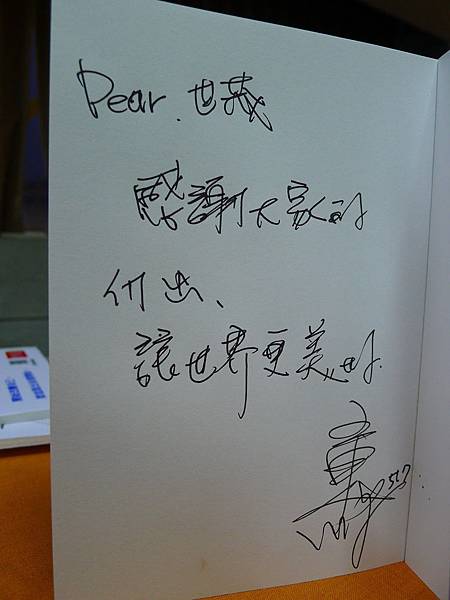 Dear. 世葳
感謝大家的
付出、
讓世界更美好.